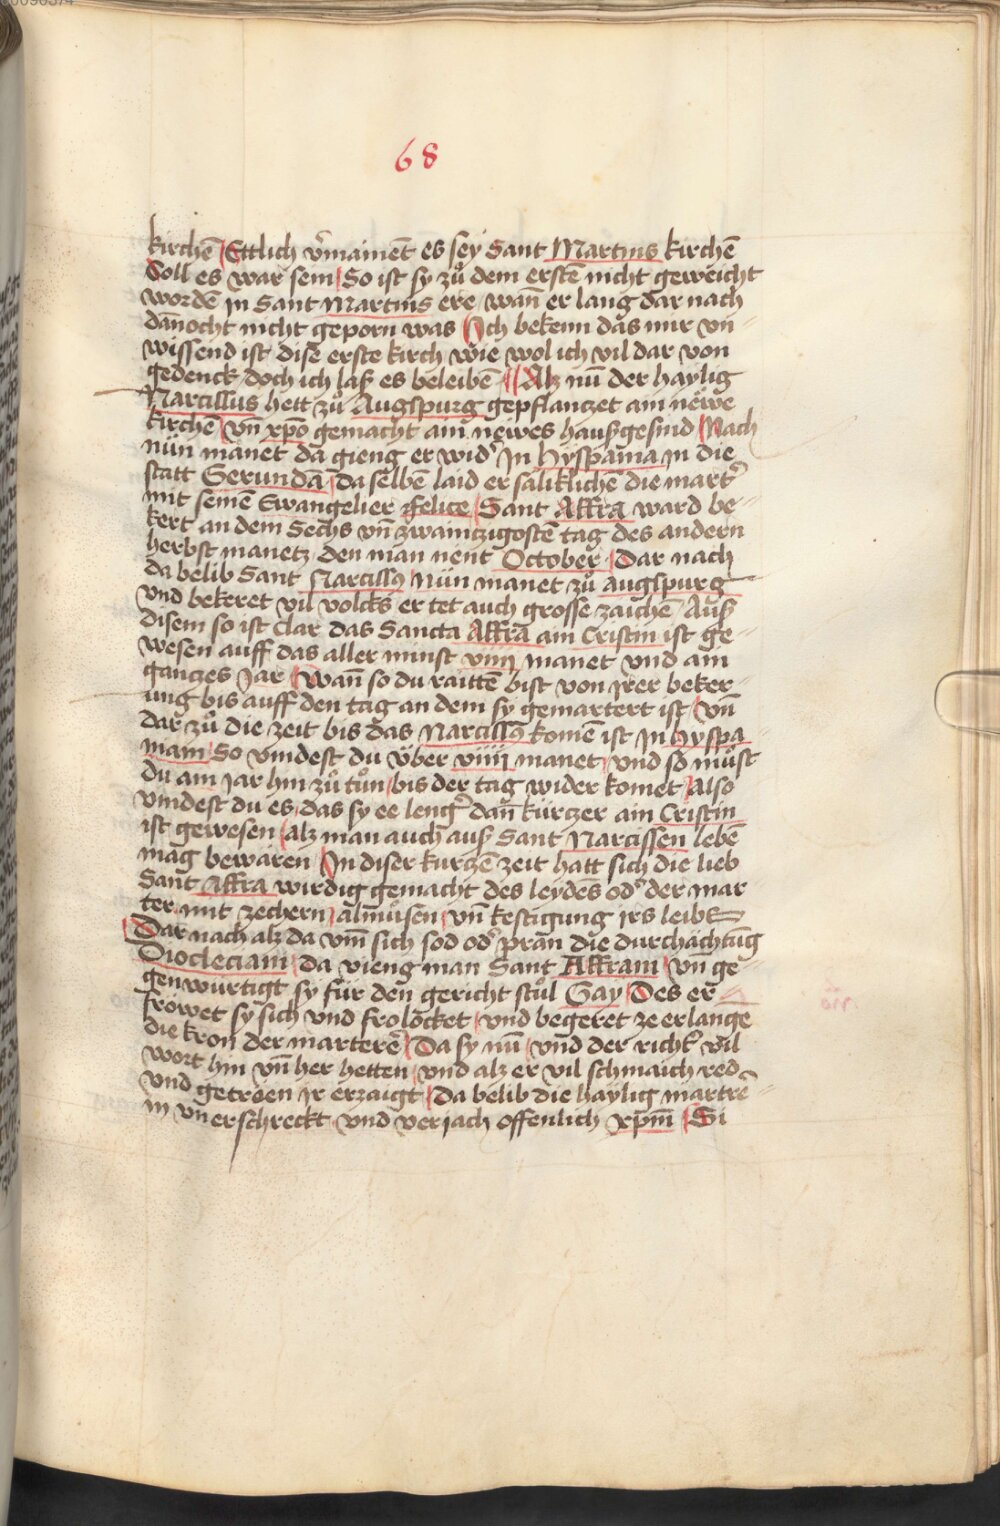 68
kirchē Ettlich v̄mainēt es sey Sant Martins kirchē
Soll es war sein So ist sy zů dem erstē nicht geweicht
wordē in Sant Martins ere wañ er lang dar nach
dañocht nicht geporn was Ich bekenn das mir vn¬
wissend ist dise erste kirch wie wol ich vil dar von
gedenck doch ich laß es beleibē Alz nū der haylig
Narcissus hett zů Augspurg gepflantzet ain newe
kirchē vñ xp̄o gemacht ain newes haußgesind Nach
nün manet da gieng er wid' In Hyspania in die
statt Gerundā Da selbē laid er sälikliche die mart'
mit seinē Ewangelier Felice Sant Affra ward be¬
kert an dem Sechs vñ zwaintzigostē tag des andern
herbst manetz den man nent October Dar nach
da belib Sant Narcissꝰ Nün manet zů augspurg
vnd bekeret vil volcks er tet auch grosse zaichē Auß
disem so ist clar das Sancta Affra ain Cristin ist ge¬
wesen auff das aller minst viiij manet vnd ain
gantzes Jar Wañ so du raittē bist von irer beker¬
ung bis auff den tag an dem sy gemartert ist vñ
dar zů die zeit bis das Narcissꝰ komē ist In hyspa
niam So vindest du über viiij manet vnd so můst
du ain jar hin zů tůn bis der tag wider komet Also
vindest du es das sy ee leng' dañ kürtzer ain Cristin
ist gewesen alz man auch auß Sant Narcissen lebē
mag bewären In diser kurtzē zeit hatt sich die lieb
Sant Affra wirdig gemacht des leydēs od' der mar
ter mit zechern almůsen vñ kestigung irs leibs
Dar nach alz da vm̄ sich sod od' pran die durchächtūg
Diocleciani da vieng man Sant Affram vñ ge¬
genwurtigt sy für den gericht stůl Gay Des er
fröwet sy sich vnd frolocket vnd begeret ze erlangē
die kron der marterē Da sy nū vnd der richt' vil
wort hin vñ her hetten vnd alz er vil schmaich red
vnd getröen ir erzaigt Da belib die haylig martrē¬
in vnerschreckt vnd veriach offenlich xp̄m̄ Si